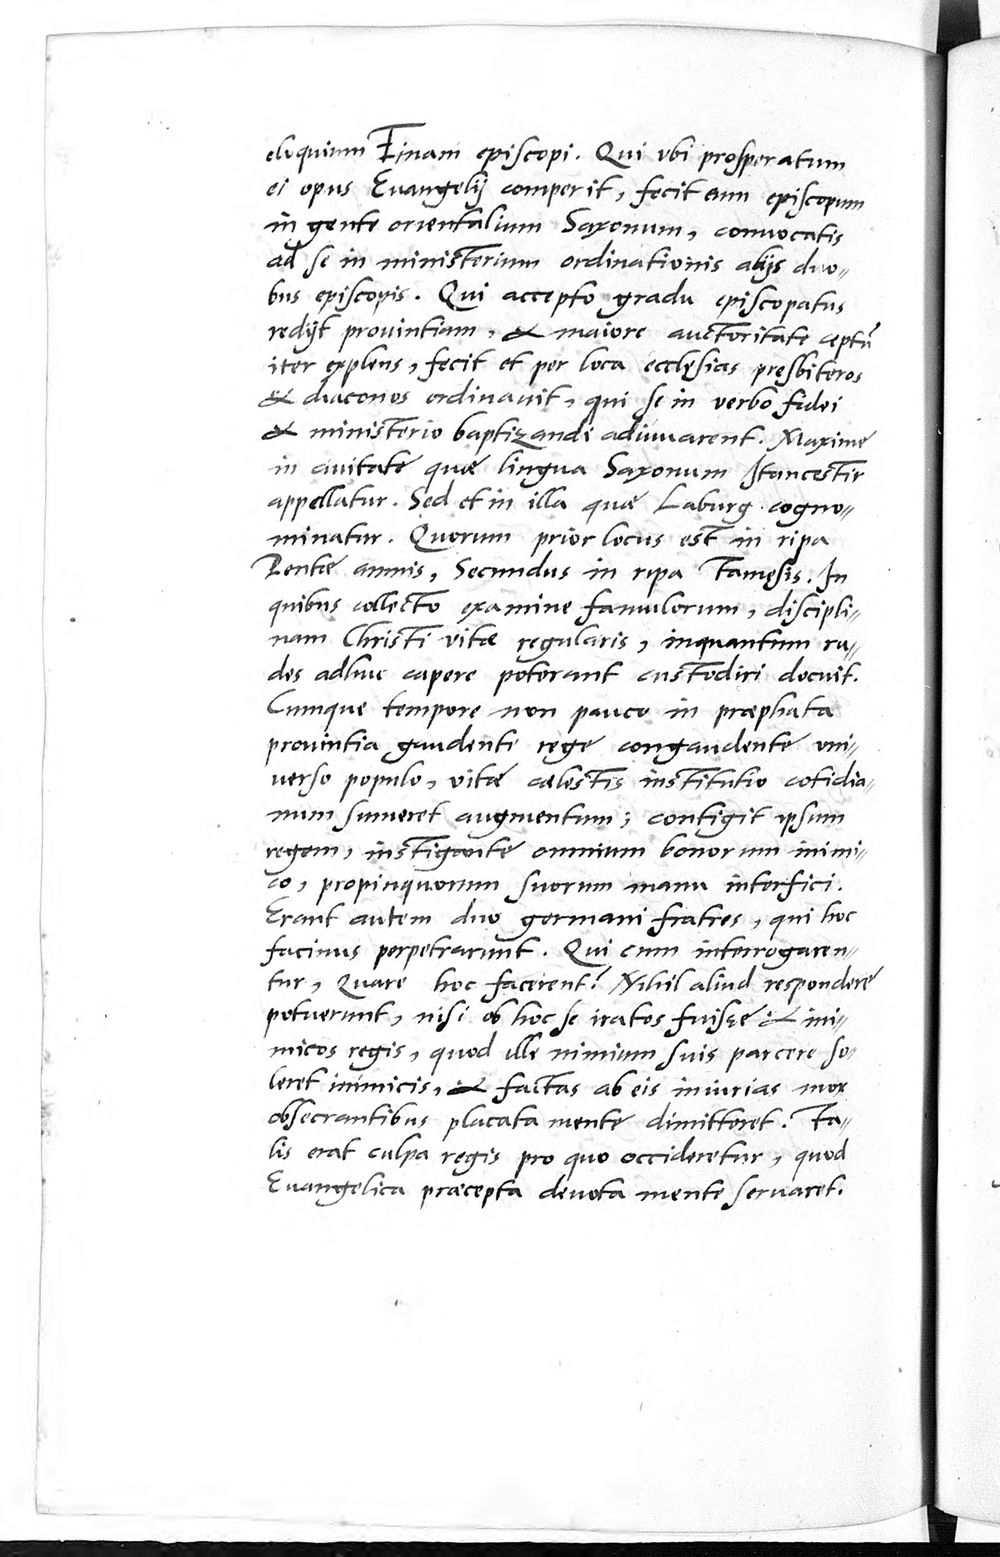 eloquium Finam episcopi. Qui vbi prosperatum
ei opus Euangelij comperit, fecit eum episcopum
in gente orientalium Saxonum, conuocatis
ad se in ministerium ordinationis alijs duo-
bus episcopis. Qui accepto gradu episcopatus
redijt prouintiam, & maiore auctoritate ceptū
iter explens, fecit et per loca ecclęsias presbiteros
& diaconos ordinauit, qui se in verbo fidei
& ministerio baptizandi adiuuarent. Maxime
in ciuitate quae lingua Saxonum Itancestir
appellatur. Sed et in illa quae Laburg cogno-
minatur. Quorum prior locus est in ripa
Pentæ amnis, Secundus in ripa Tamesis. In
quibus collecto examine famulorum, discipli-
nam Christi vitæ regularis, inquantum ru-
des adhuc capere poterant custodiri docuit.
Cumque tempore non pauco in præphata
prouintia gaudente rege congaudente vni-
uerso populo, vitæ cælestis institutio cotidia-
num sumeret augmentum; contigit ipsum
regem, instigante omnium bonorum inimi-
co, propinquorum suorum manu interfici.
Erant autem duo germani fratres, qui hoc
facinus perpetrarunt. Qui cum interrogaren-
tur, Quare hoc facerent? Nihil aliud respondere
potuerunt, nisi ob hoc se iratos fuisse & ini-
micos regis, quod ille nimium suis parcere so-
leret inimicis, & factas ab eis iniurias mox
obsecrantibus placata mente dimitteret. Ta-
lis erat culpa regis pro quo occideretur, quod
Euangelica præcepta deuota mente seruaret.